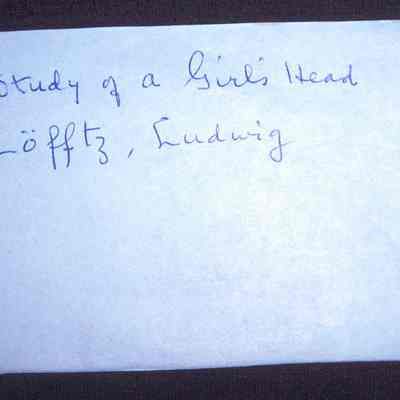 Study of a Girl's Head
Löfftz, Ludwig